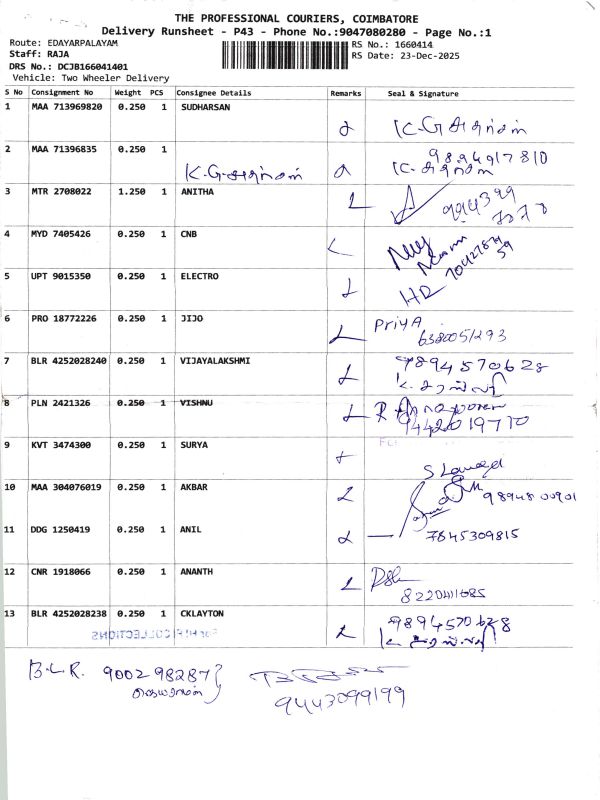 THE PROFESSIONAL COURIERS, COIMBATORE
Delivery Runsheet - P43 - Phone No.:9047080280 - Page No.:1
Route: EDAYARPALAYAM RS No.: 1660414
Staff: RAJA RS Date: 23-Dec-2025
DRS No.: DCJB166041401
Vehicle: Two Wheeler Delivery
S No Consignment No Weight PCS Consignee Details Remarks Seal & Signature
1 MAA 713969820 0.250 1 SUDHARSAN
2 MAA 71396835 0.250 1 9894917810
3 MTR 2708022 1.250 1 ANITHA
4 MYD 7405426 0.250 1 CNB
5 UPT 9015350 0.250 1 ELECTRO
6 PRO 18772226 0.250 1 JIJO Priya
6380051293
7 BLR 4252028240 0.250 1 VIJAYALAKSHMI 9894570628
8 PLN 2421326 0.250 1 VISHNU
9442019770
9 KVT 3474300 0.250 1 SURYA
10 MAA 304076019 0.250 1 AKBAR 98948 00901
11 DDG 1250419 0.250 1 ANIL 7845309815
12 CNR 1918066 0.250 1 ANANTH
13 BLR 4252028238 0.250 1 CKLAYTON 9894570628
For HI FI COLLECTIONS
B.L.R. 9002982877
9443099199